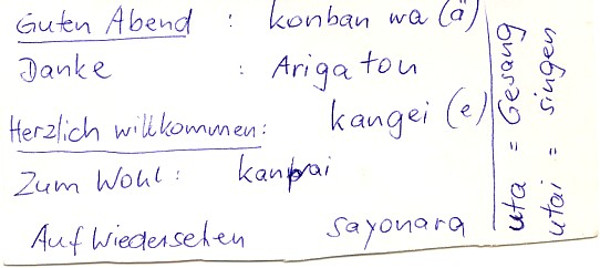 Guten Abend : konban wa (ä)
Danke : Arigatou
Herzlich willkommen: kangei (e)
Zum Wohl: kanpai
Auf Wiedersehen sayonara
uta = Gesang
utai = singen